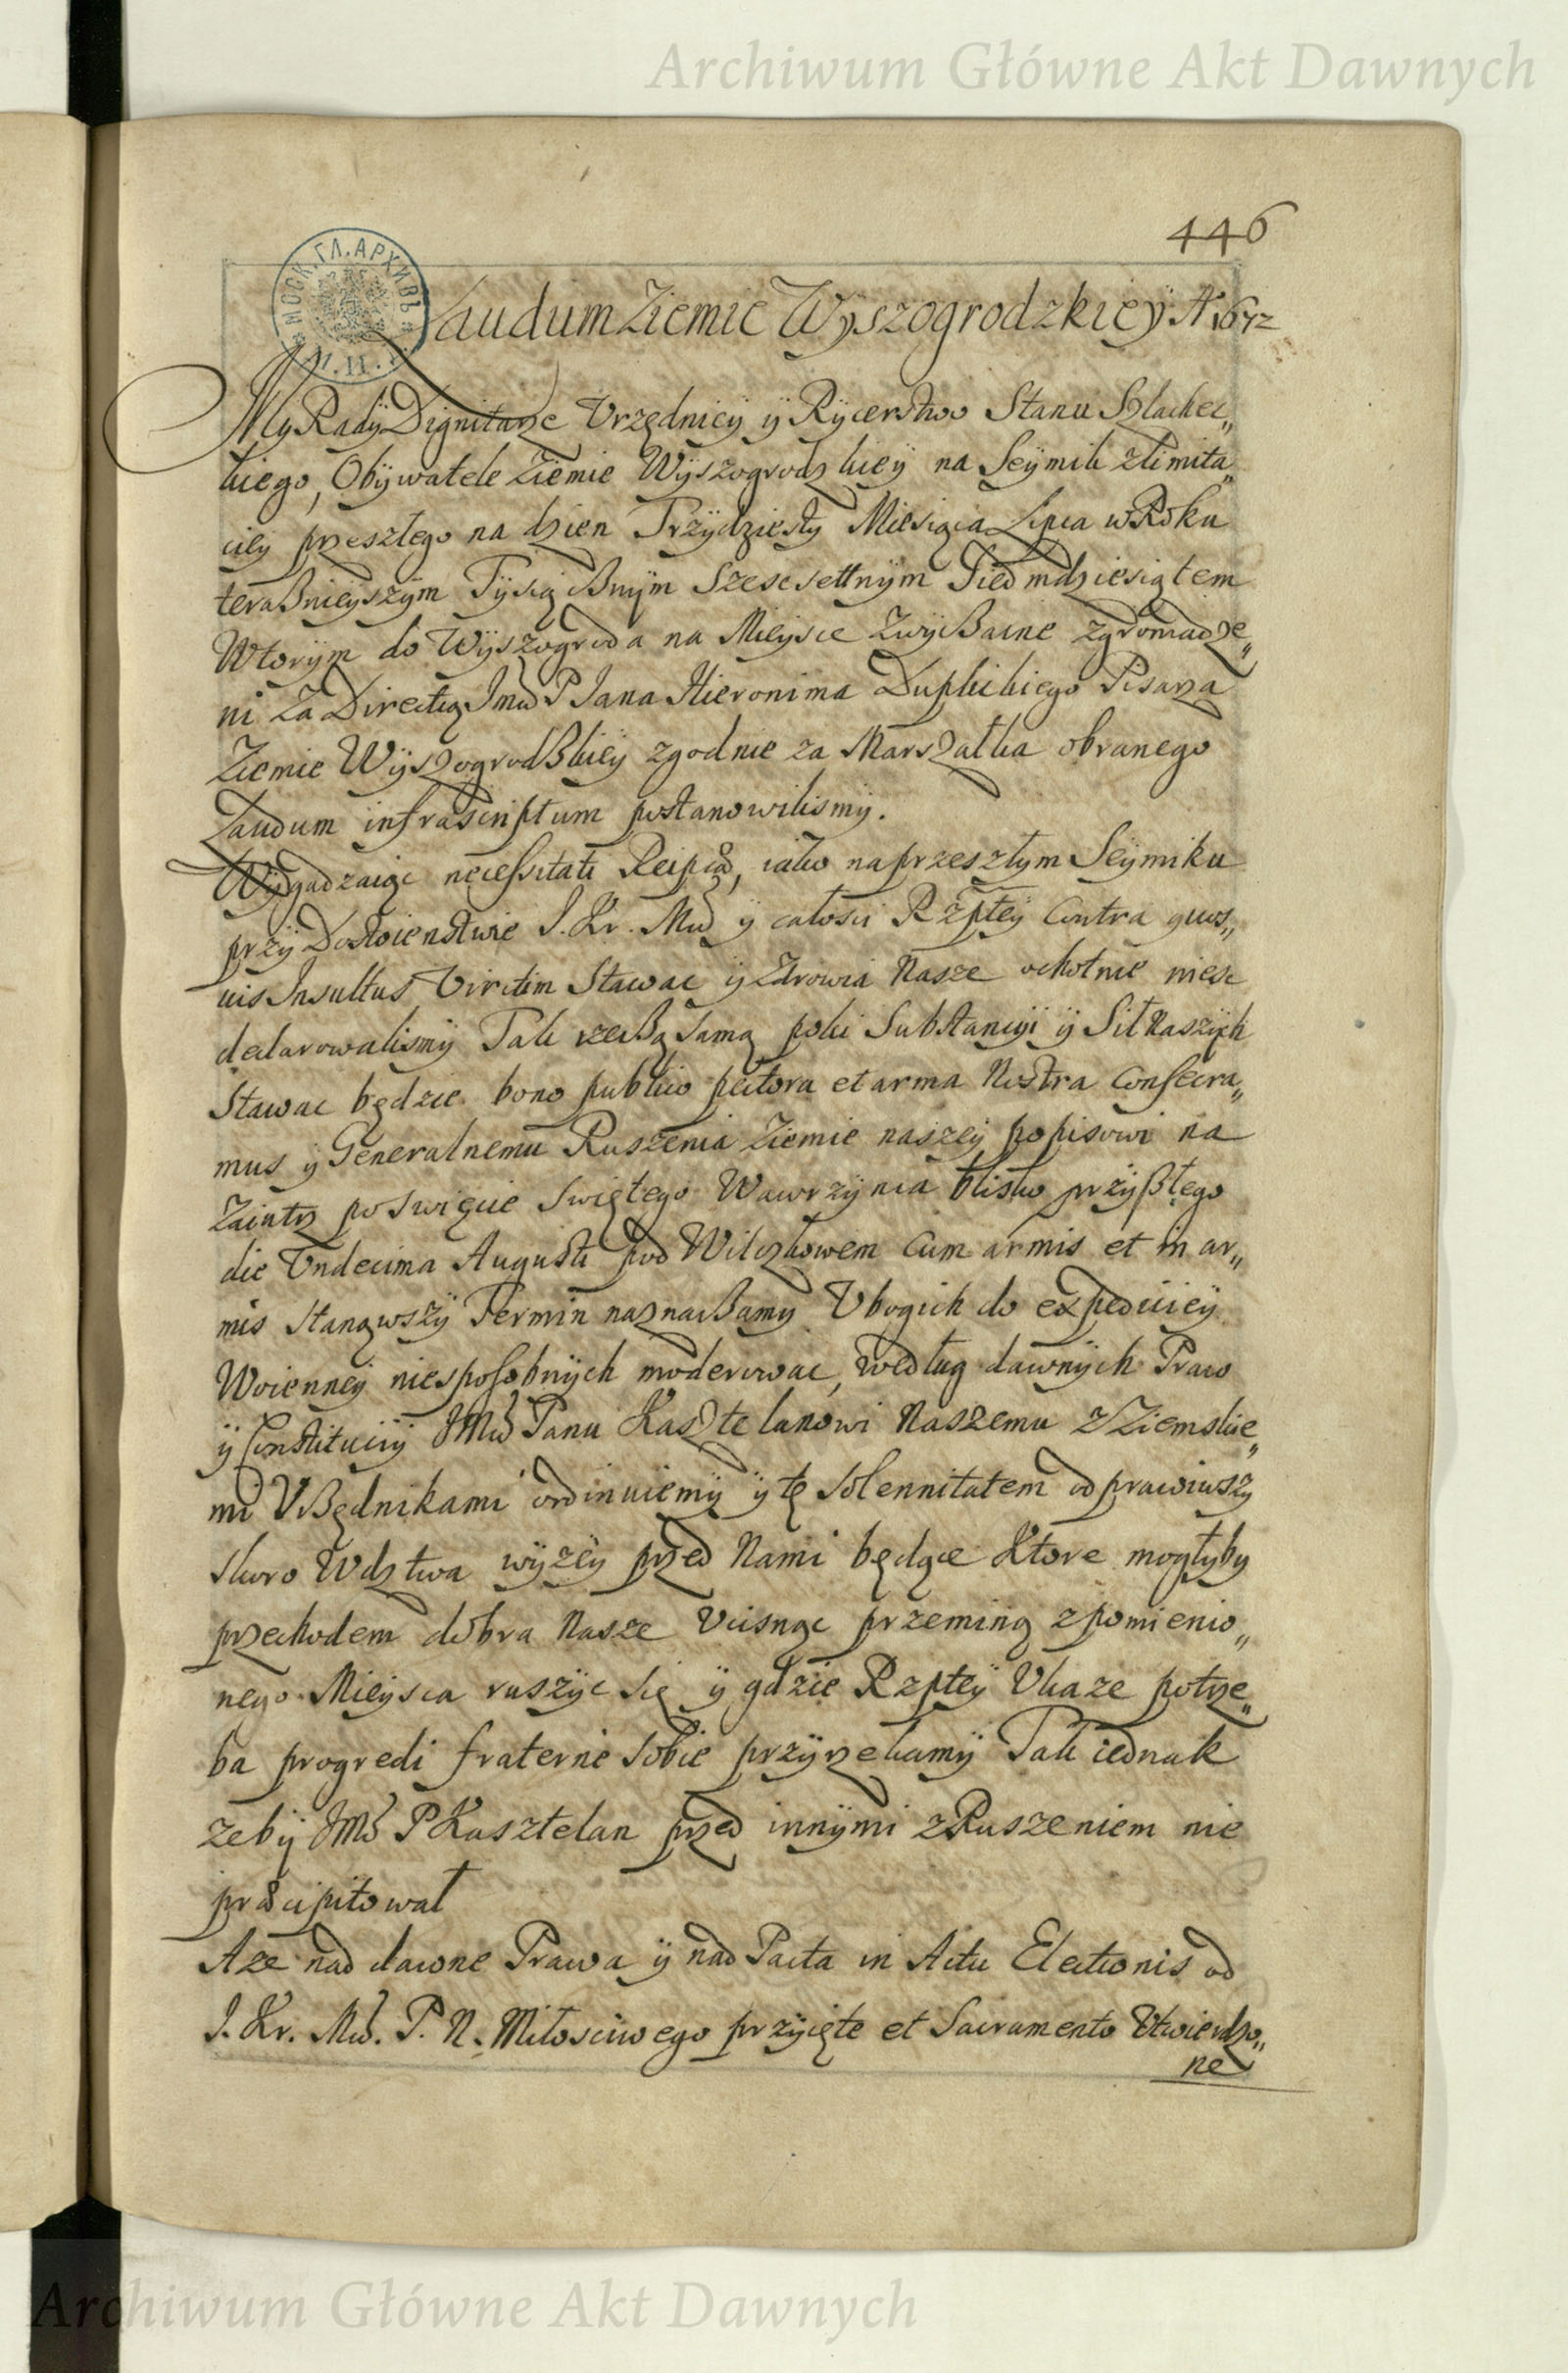 Archiwum Główne Akt Dawnych
446
МОСК. ГЛ. АРХИВЪ
М. И. Д.
Laudum Ziemie Wyszogrodzkiey Aº 1672
My Rady Dignitarze Vrzędnicy ÿ Rÿcerstwo Stanu Szlachec„
kiego, Obÿwatele Ziemie Wÿszogrodzkieÿ na Seÿmik z limita„
cÿey przeszłego na dzien Trzÿdziestÿ Miesiąca Lipca w Roku
teraßnieÿszÿm Tÿsiąćßnÿm Szescsettnÿm Siedmdziesiątem
Wtorÿm do Wÿszogroda na Mieÿsce Zwÿßaine zgromadze„
ni Za Directią Jmći P Jana Hieronima Duplickiego Pisarza
Ziemie Wÿszogrodßkieÿ zgodnie za Marszałka obranego
Laudum infrascriptum postanowilismÿ.
Wÿgadzaiąc necessitati Reipca, iako na przeszłym Seÿmiku
przÿ Dostoienstwie J. Kr. Mći ÿ całosci Rzptey Contra quos„
uis Insultus Viritim Stawac ÿ Zdrowia Nasze ochotnie niesc
declarowalismÿ Tak rzeßą samą poki Substancÿi ÿ Sił Naszÿch
Stawac będzie bono publico pectora et arma Nostra Consecra„
mus ÿ Generalnemu Ruszenia Ziemie naszeÿ popisowi na
Zaiutrz po swięcie swiętego Wawrzÿnca blisko przÿßłego
die Vndecima Augusti pod Wilczkowem Cum armis et in ar„
mis stanąwszÿ Termin naznaßamy Vbogich do expediciey
Woienneÿ niesposobnÿch moderować, według dawnÿch Praw
ÿ Constitucÿi JMći Panu Kasztelanowi Naszemu z Ziemskie„
mi Vßędnikami ordinuiemÿ ÿ tę Solennitatem odprawiwszy
skoro Wdztwa wÿzeÿ przed Nami będące Ktore mogłyby
przechodem dobra Nasze Vcisnąc przeminą z pomienio„
nego Mieysca ruszÿc się ÿ gdzie Rzpteÿ Vkaze potrze„
ba progredi fraterne sobie przÿrzekamÿ Tak iednak
zebÿ JMć P Kasztelan przed innÿmi z Ruszeniem nie
præcipitował
A ze nad dawne Prawa ÿ nad Pacta in Actu Electionis od
J. Kr. Mći. P. N. Miłosciwego przÿięte et Sacramento Vtwierdzo„
ne
Archiwum Główne Akt Dawnych